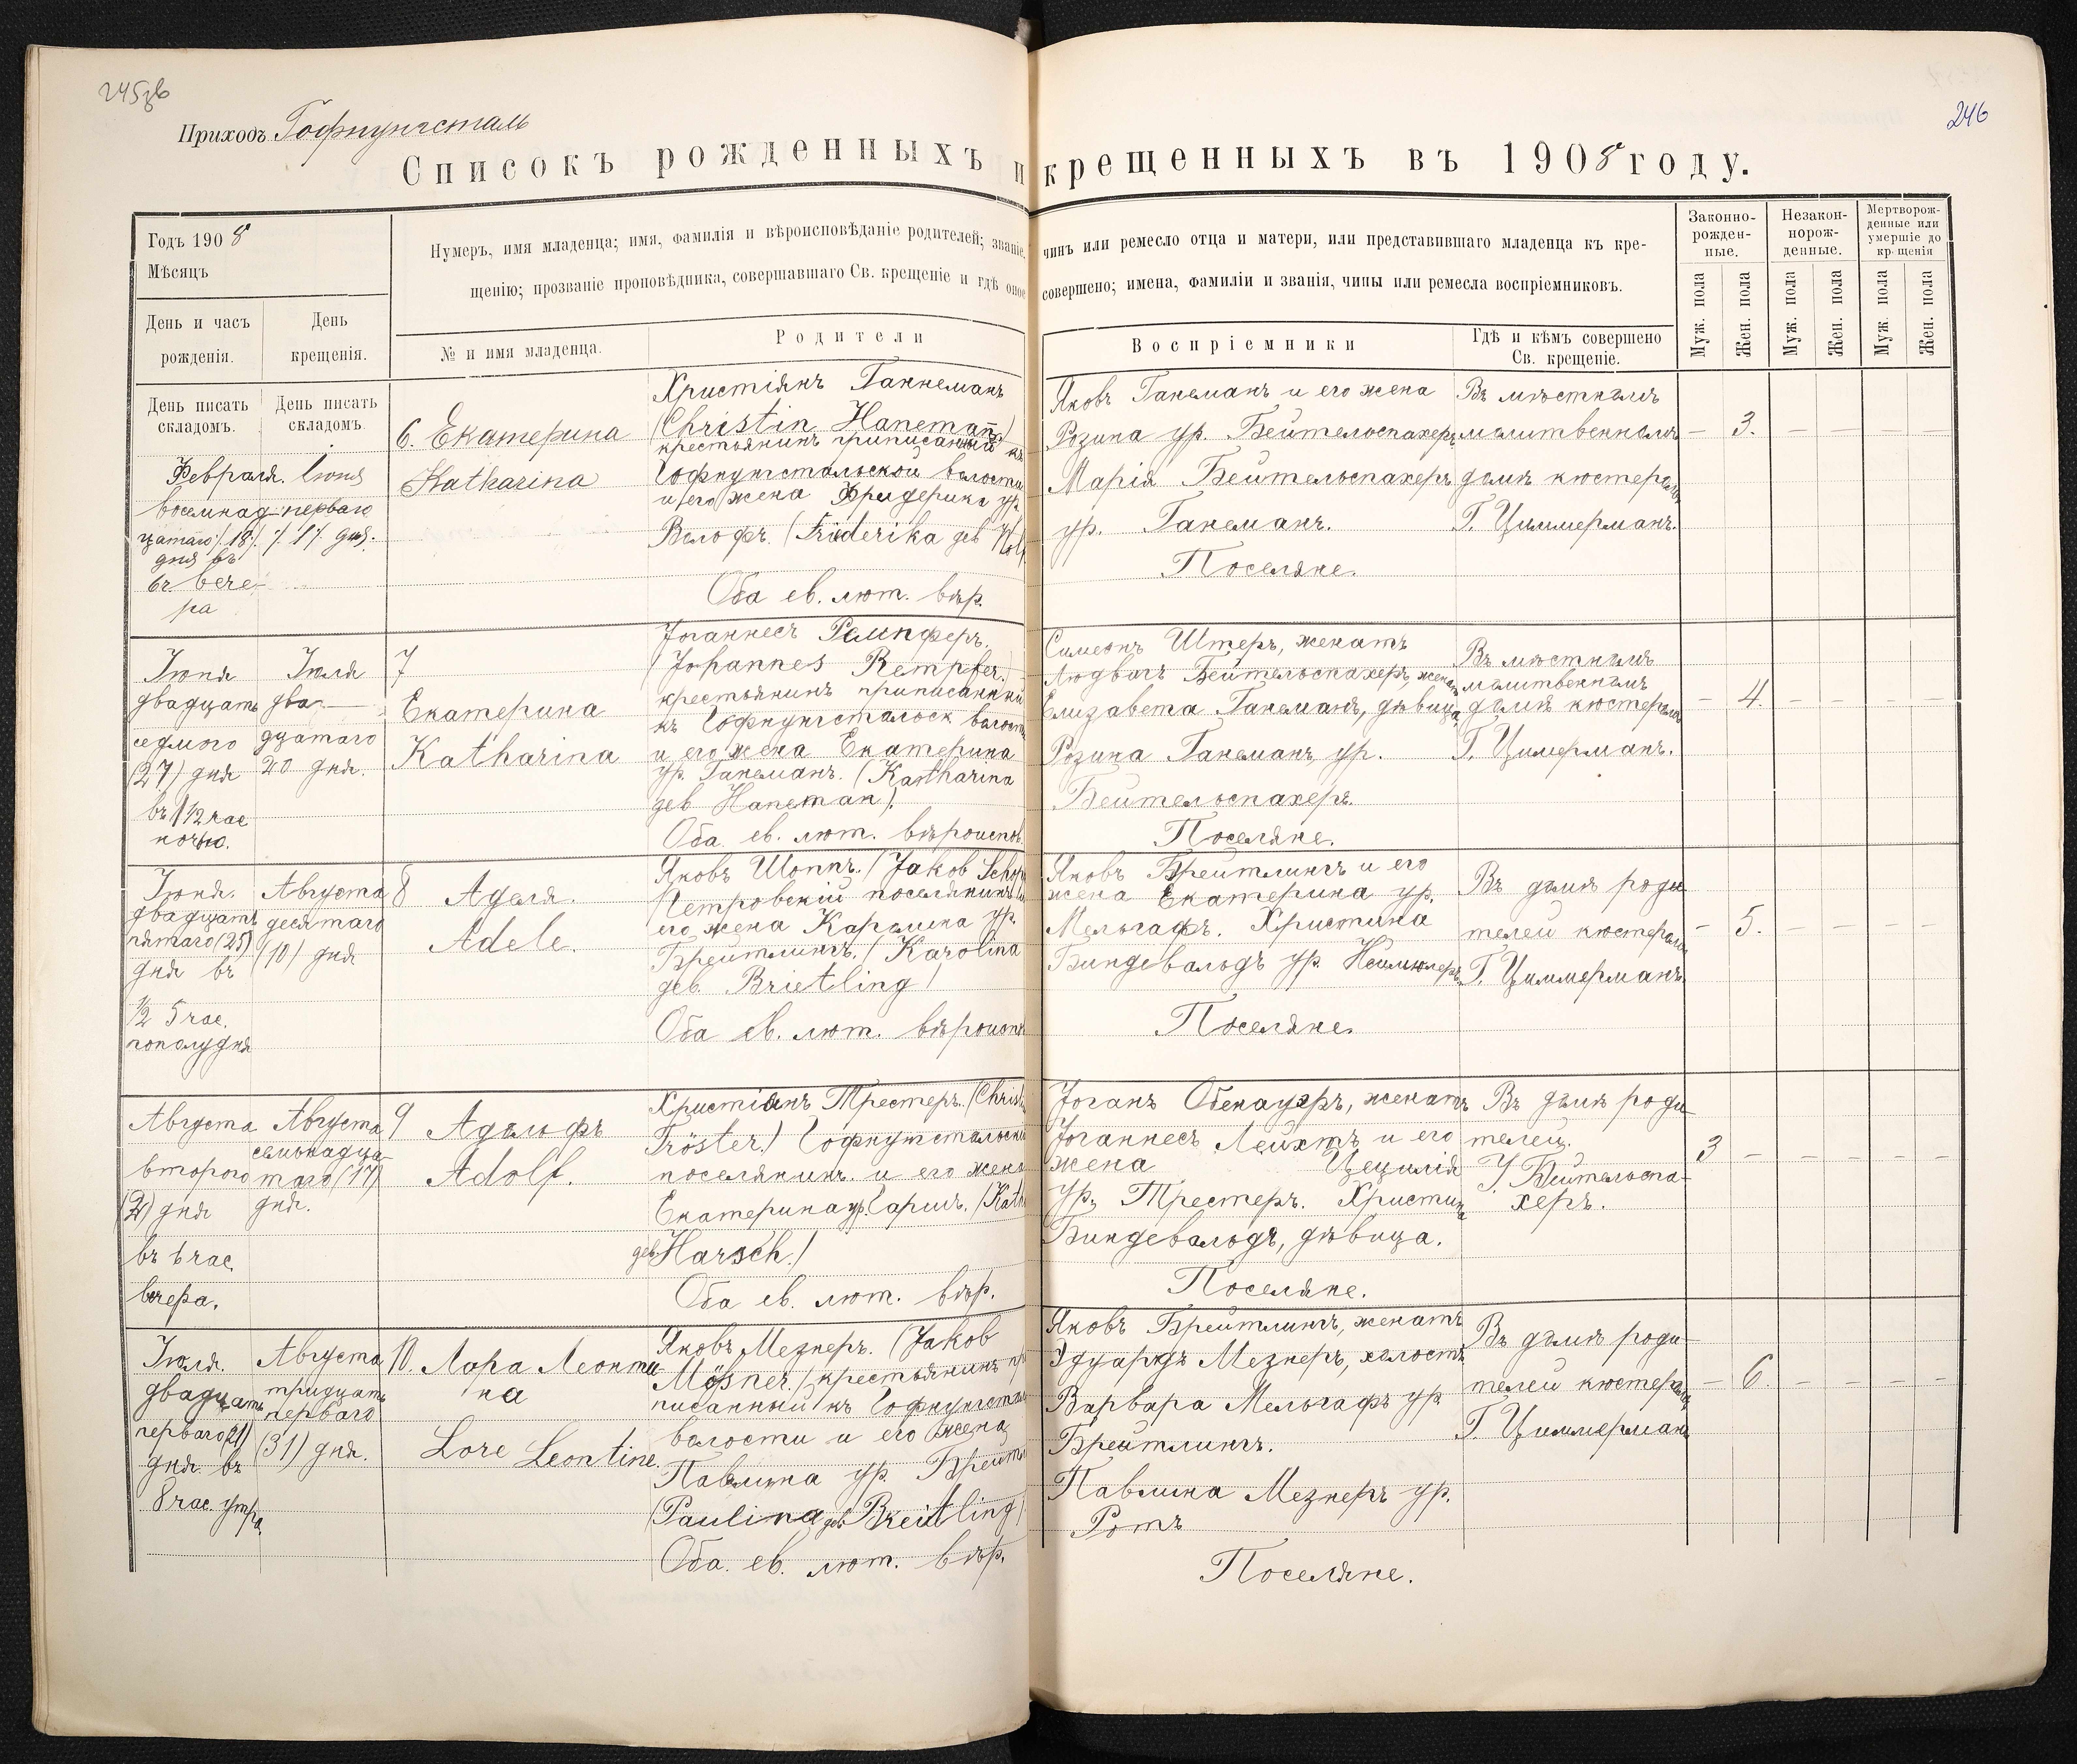 245об
246
Приходъ Гофнунгсталь
Списокъ рожденныхъ и крещенныхъ въ 1908 году.
Годъ 1908
Мѣсяцъ
Нумеръ, имя младенца; имя, фамилія и вѣроисповѣданіе родителей; званіе, чинъ или ремесло отца и матери, или представившаго младенца къ кре-
щенію; прозваніе проповѣдника, совершавшаго Св. крещеніе и гдѣ оное совершено; имена, фамиліи и званія, чины или ремесла воспріемниковъ.
Законно-
рожден-
ные.
Незакон-
норож-
денные.
Мертворож-
денные или
умершіе до
кр-щенія
Муж. пола
Жен. пола
Муж. пола
Жен. пола
Муж. пола
Жен. пола
День и часъ
рожденія.
День
крещенія.
№ и имя младенца.
Родители
Воспріемники
Гдѣ и кѣмъ совершено
Св. крещеніе.
День писать
складомъ.
День писать
складомъ.
Февраля.
восемнад-
цатаго /.18/.
дня въ
6 ч. вече-
ра
Іюня
перваго
/.1/. дня.
6. Екатерина
Katharina
Христіянъ Ганнеманъ
(Christin Haneman)
крестьянинъ приписанный къ
Гофнунгстальской волости
и его жена Фридерика ур.
Вольфъ. (Friderika geb Wolf
Оба ев. лют. вѣр.
Яковъ Ганеманъ и его жена
Розина ур. Бейтельспахеръ,
Марія Бейтельспахеръ
ур. Ганеманъ.
Поселяне.
Въ мѣстномъ
молитвенномъ
домѣ кюстеромъ
Г. Циммерманъ.
— 3. — — — —
Іюня
двадцать
седмого
(27) дня
въ 1/2 12 час
ночью.
Іюля
два-
дцатаго
20 дня.
7
Екатерина
Katharina
Іоганнесъ Ремпферъ,
(Johannes Rempfer.)
крестьянинъ приписанный
къ Гофнунгстальск волости
и его жена Екатерина
ур. Ганеманъ. (Katharina
geb Haneman).
Оба ев. лют. вѣроиспов.
Симеонъ Штеръ, женатъ
Людвигъ Бейтельспахеръ, женатъ
Елизавета Ганеманъ, дѣвица,
Розина Ганеманъ, ур.
Бейтельспахеръ.
Поселяне.
Въ мѣстномъ
молитвенномъ
домѣ кюстеромъ
Г. Цимерманъ.
— 4. — — — —
Іюня.
двадцать
пятаго (25)
дня въ
1/2 5 час.
пополудня
Августа
десятаго
(10) дня
8 Аделя.
Adele.
Яковъ Шоппъ. (Jakob
Петровскій поселянинъ и
его жена Каролина ур.
Брейтлингъ. (Karolina
geb. Brietling)
Оба ев. лют. вѣроиспов
Яковъ Брейтлингъ и его
жена Екатерина ур.
Мельгафъ. Христина
Биндевальдъ ур. Неймюлеръ
Поселяне.
Въ домѣ роди
телей кюстеромъ
Г. Циммерманъ.
— 5. — — — —
Августа
второго
(2) дня
въ 6 час.
вечера.
Августа
семьнадца-
таго (17)
дня.
9 Адольфъ
Adolf.
Христіанъ Трестеръ. (Christ
Tröster.) Гофнунгстальскій
поселянинъ и его жена
Екатерина ур. Гаршъ. (Kath
geb Harsch.)
Оба ев. лют. вѣр.
Іоганъ Обенауэръ, женатъ
Іоганнесъ Лейхтъ и его
жена Цецилія
ур. Трестеръ. Христина
Биндевальдъ, дѣвица.
Поселяне.
Въ домѣ роди-
телей.
У. Бейтельспа-
херъ.
3 — — — — —
Іюля.
двадцать
перваго (21)
дня въ
8 час. утра
Августа
тридцать
перваго
(31) дня.
10. Лора Леонти-
на
Lore Leontine.
Яковъ Мезнеръ. (Jakob
Mösner.) крестьянинъ при
писанный къ Гофнунгсталь
волости и его жена
Павлина ур. Брейтл
(Paulina geb Breitling)
Оба. ев. лют. вѣр.
Яковъ Брейтлингъ, женатъ
Эдуардъ Мезнеръ, холостъ
Варвара Мельгафъ ур.
Брейтлингъ.
Павлина Мезнеръ ур.
Ротъ
Поселяне.
Въ домѣ роди-
телей кюстеромъ
Г. Циммерманъ
— 6. — — — —